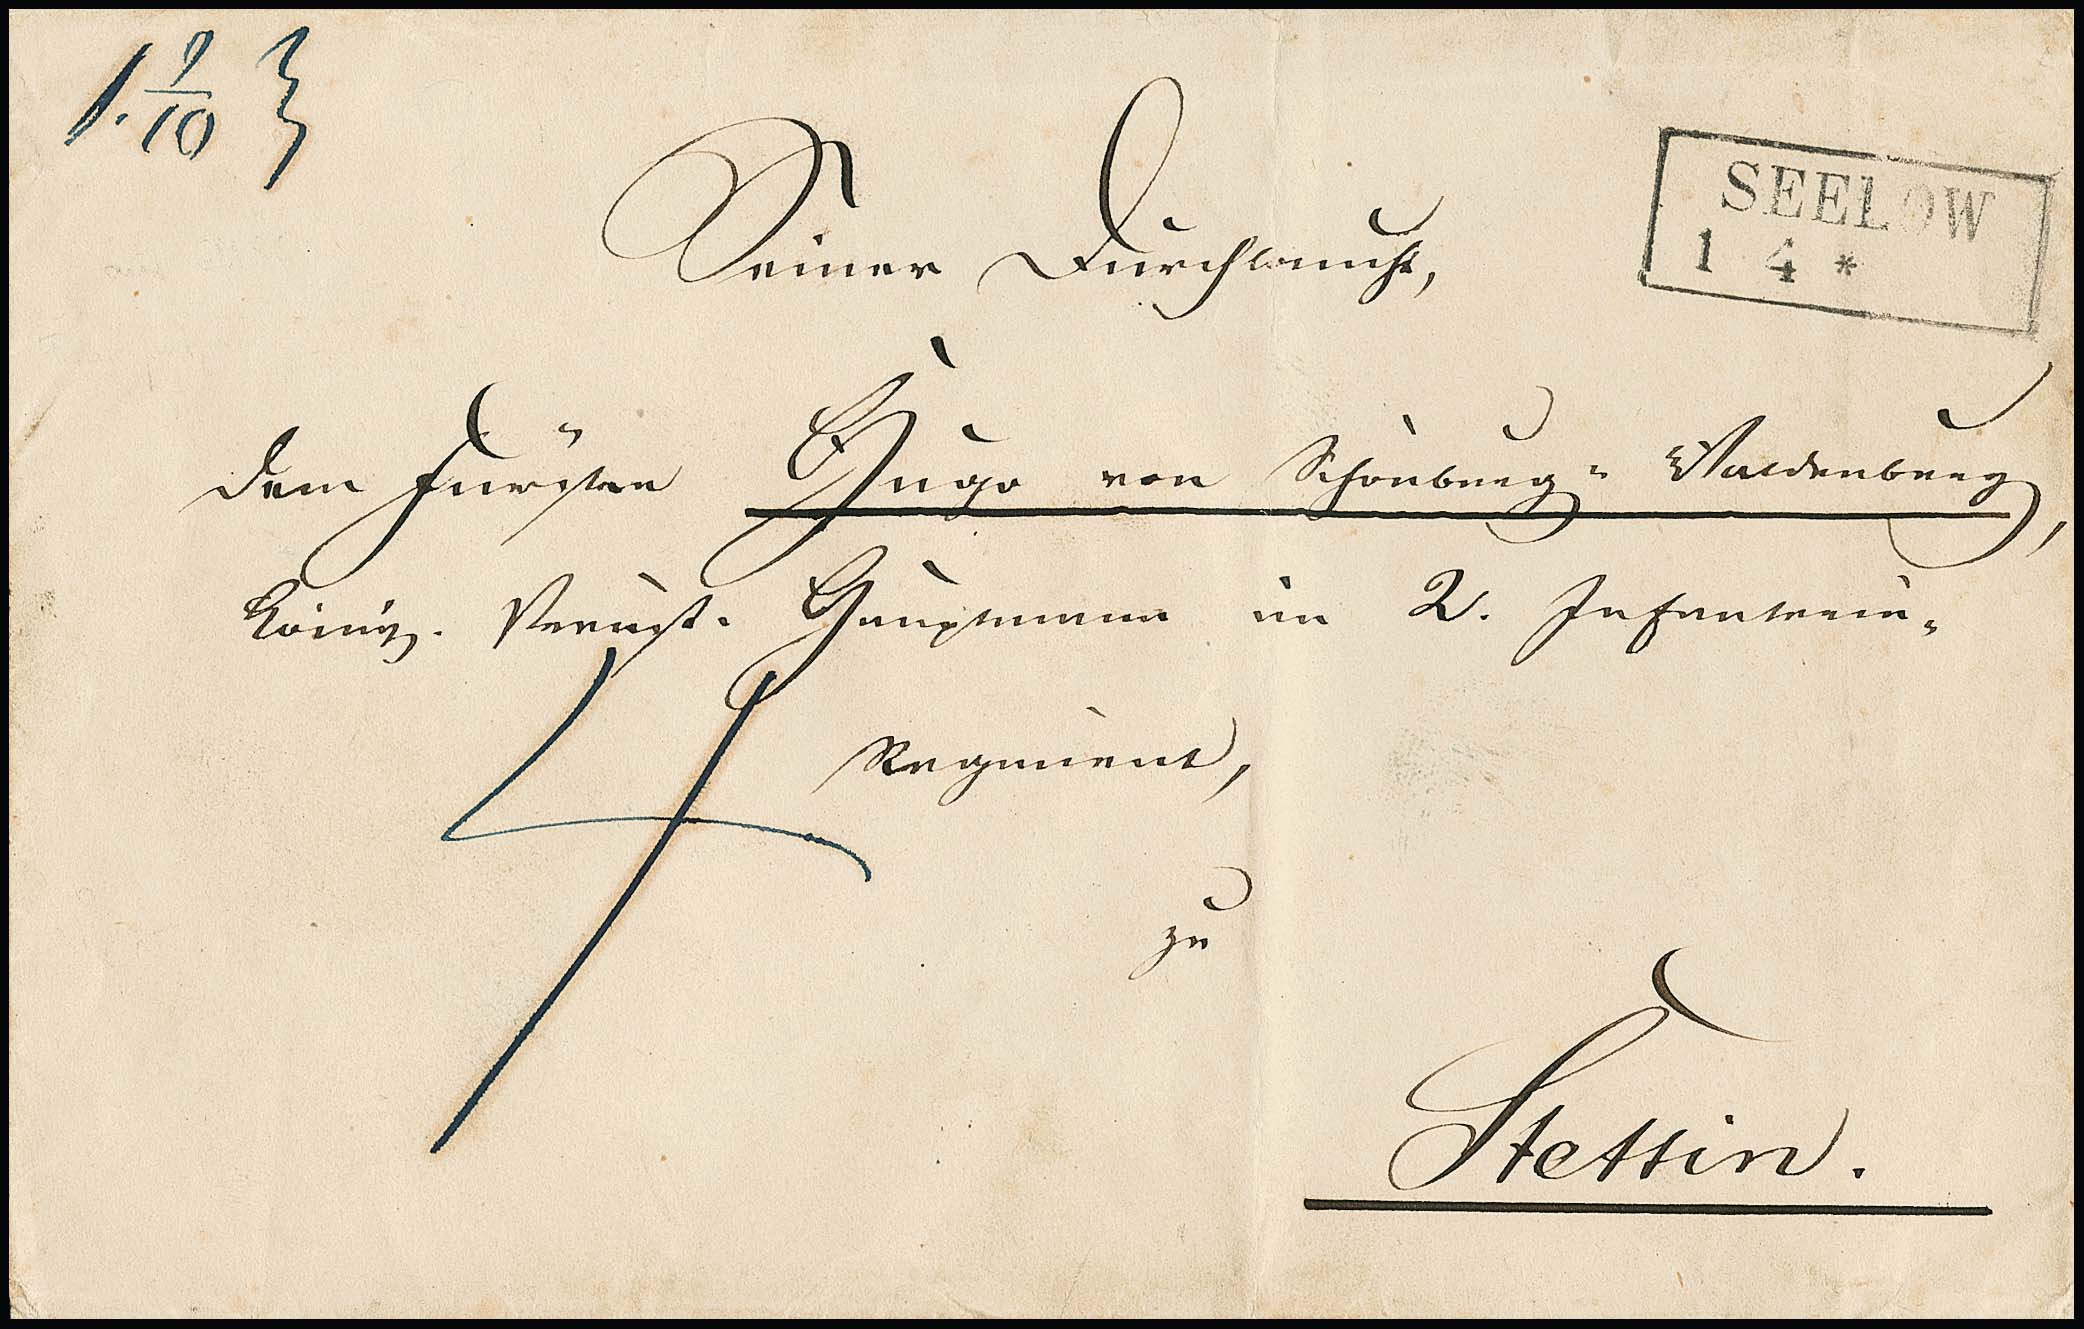 1. 9/10
SEELOW
1 4 *
Seiner Durchlaucht,
dem Fürsten Hugo von Schönburg=Waldenburg,
Königl. Preuß. Hauptmann im 2. Infanterie=
4
Regiment,
zu
Stettin.